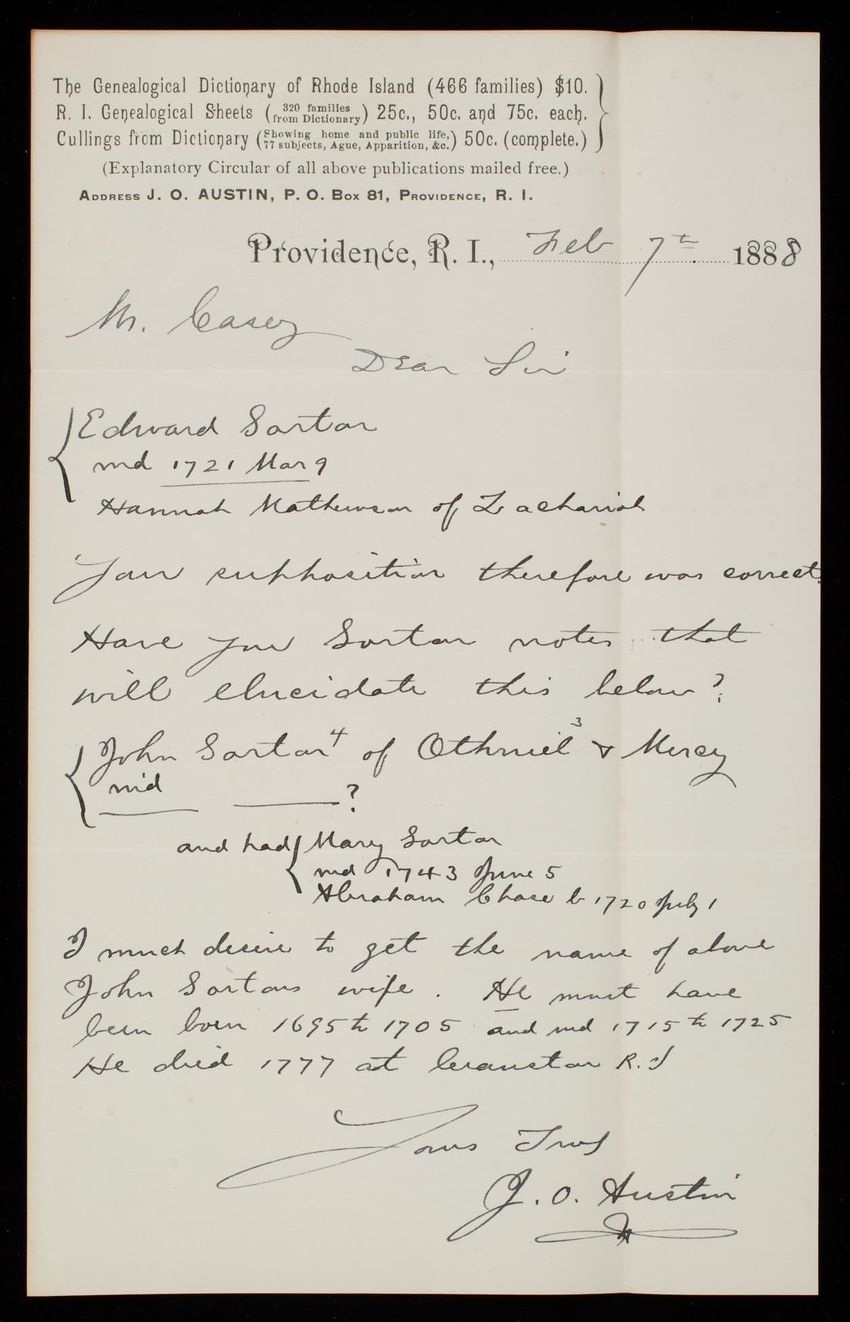 The Genealogical Dictionary of Rhode Island (466 families) $10.
R. I. Genealogical Sheets (320 families from Dictionary) 25c., 50c. and 75c. each.
Cullings from Dictionary (Showing home and public life, 77 subjects, Ague, Apparition, &c.) 50c. (complete.)
(Explanatory Circular of all above publications mailed free.)
ADDRESS J. O. AUSTIN, P. O. BOX 81, PROVIDENCE, R. I.
Providence, R. I., Feb 7th 1888
Mr. Casey
Dear Sir
Edward Gorton
md 1721 Mar 9
Hannah Mathewson of Zachariah
Your supposition therefore was correct.
Have you Gorton notes that
will elucidate this below?
John Gorton4 of Othniel3 & Mercy
md ?
and had Mary Gorton
md 1743 June 5
Abraham Chase b 1720 July 1
I much desire to get the name of above
John Gortons wife. He must have
been born 1695 to 1705 and md 1715 to 1725
He died 1777 at Cranston R. I
Yours Truly
J. O. Austin